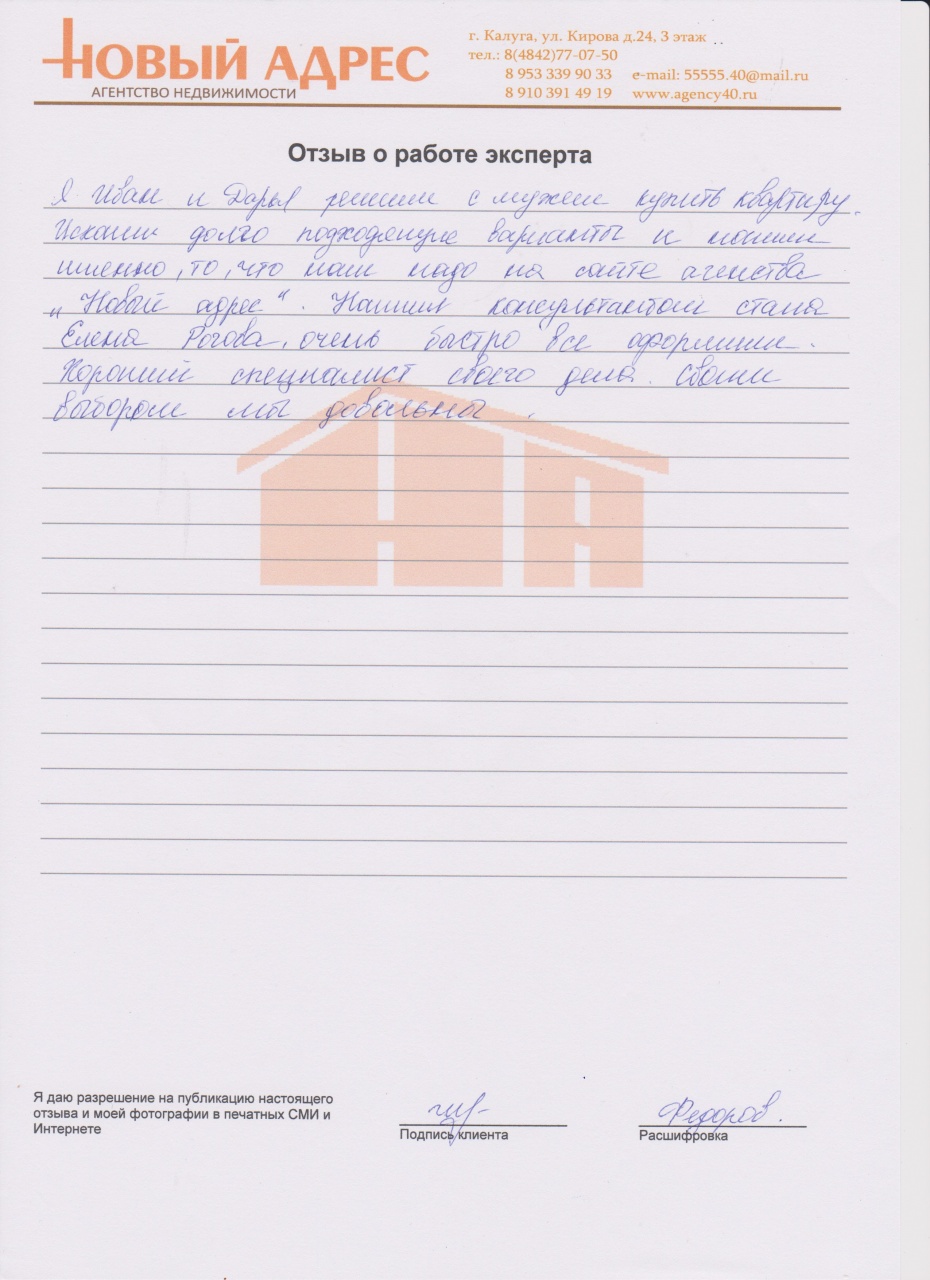 НОВЫЙ АДРЕС
АГЕНТСТВО НЕДВИЖИМОСТИ
г. Калуга, ул. Кирова д.24, 3 этаж
тел.: 8(4842)77-07-50
8 953 339 90 33 e-mail: 55555.40@mail.ru
8 910 391 49 19 www.agency40.ru
Отзыв о работе эксперта
Я Иван и Дарья решили с мужем купить квартиру.
Искали долго подходящие варианты и нашли
именно, то, что нам надо на сайте агенства
„Новый адрес“. Нашим консультантом стала
Елена Рогова, очень быстро все оформили.
Хороший специалист своего дела. Своим
выбором мы довольны.
НА
Я даю разрешение на публикацию настоящего
отзыва и моей фотографии в печатных СМИ и
Интернете
Подпись клиента
Федоров.
Расшифровка